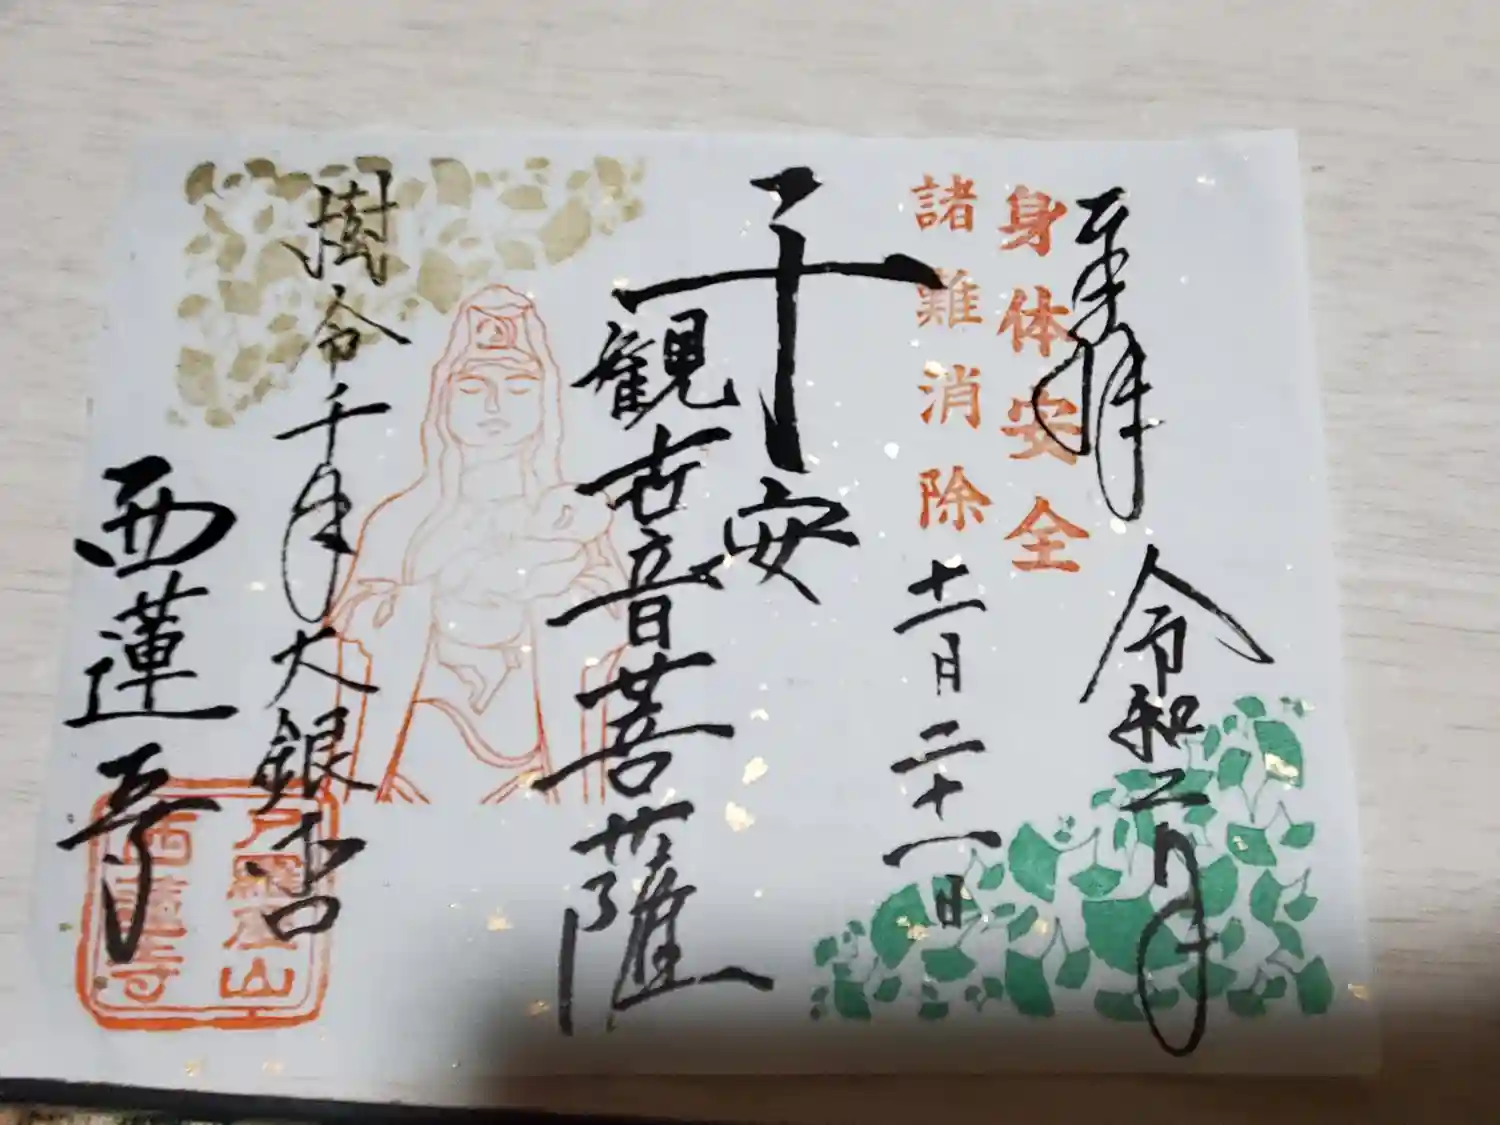 奉拝 令和二年
身体安全
諸難消除
十一月二十一日
子安
観世音菩薩
樹令千年大銀杏
西蓮寺
尸羅度山
西蓮寺